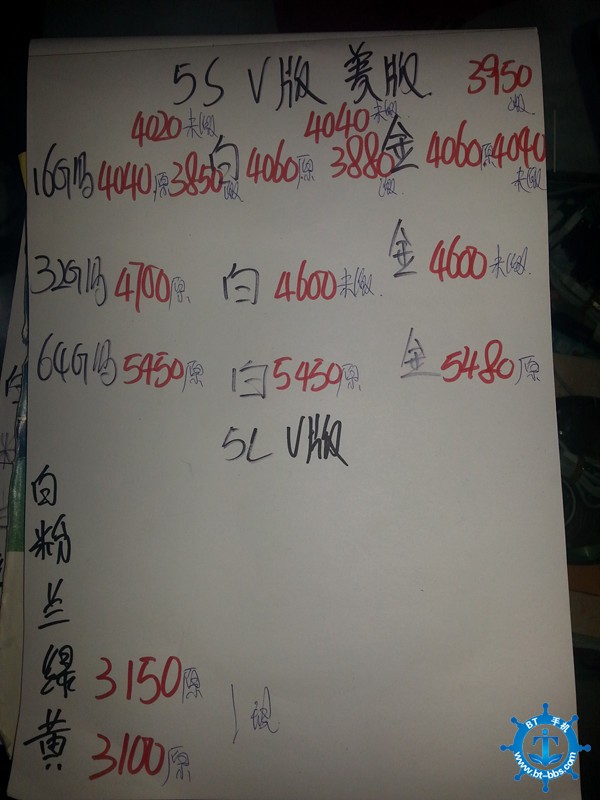 5S V版 美版. 3950
4020 未激 4040 未激
16G 4040原 3850 白 4060原 3880 金 4060原 4040
未激
32G 4700原 白 4600未激. 金 4600未激.
64G 5450原 白 5450原 金 5480原
5C V版
白
粉
兰
绿 3150原
黄 3100原
BT 手机
www.bt-bbs.com